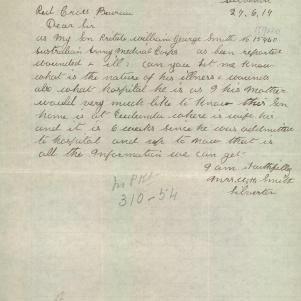 Silverton
27.6.19
Red Cross Bureau
Dear Sir
as My Son Private William George Smith No 15960
Australian Army Medical Corps as been reported
wounded & ill: can you let me know
what is the nature of his illness & wounds
also what hospital he is as I his Mother
would very much like to know this Son
home is at where is wife is
and it is 6 weeks since he was addmitted
to hospital and up to now that is
all the Information we can get
I am Faithfully
Mrs Smith
Silverton
310-54